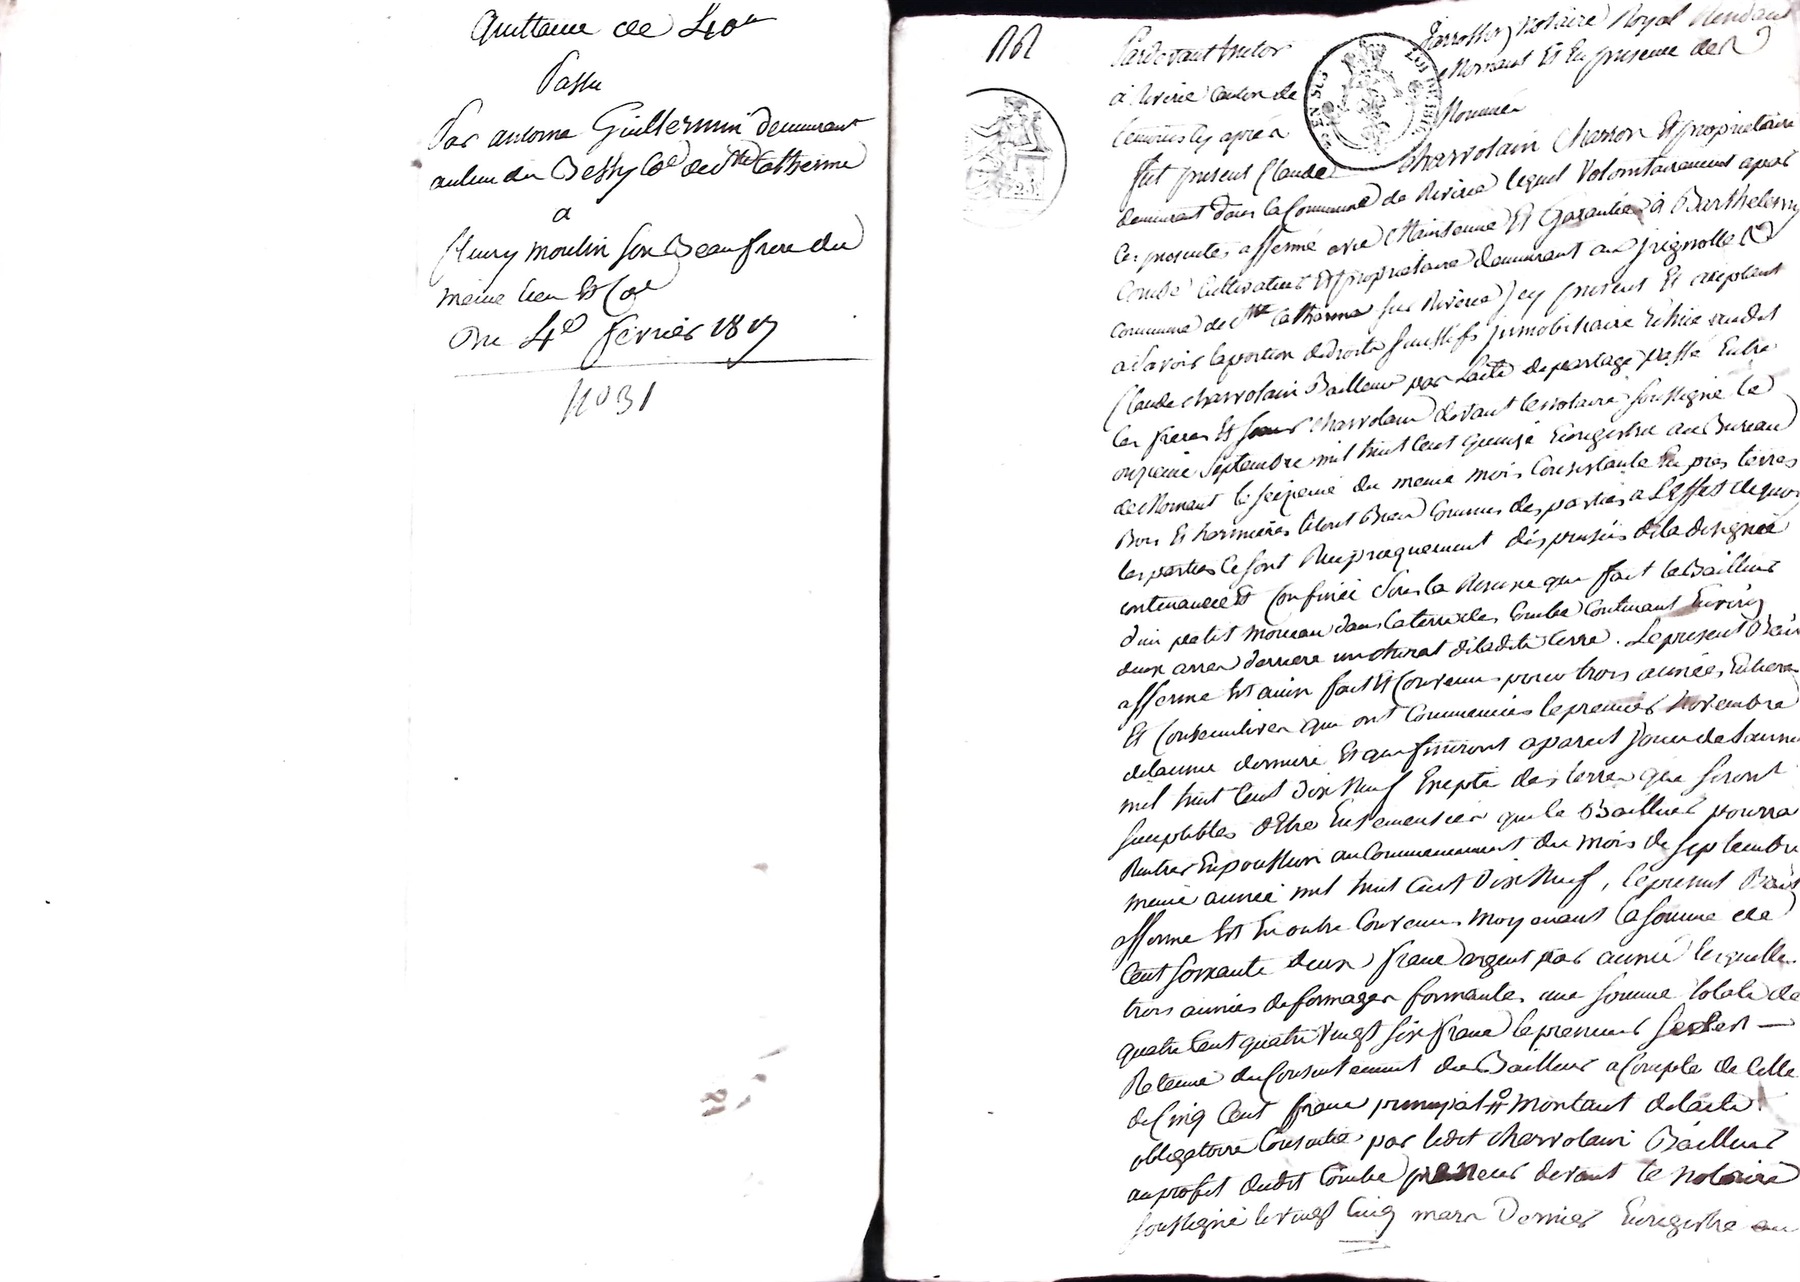 Quittance de 40#
Passé
Par antoine Guillermin demeurant
au lieu du Bessy Cne de Ste Catherine
a
fleury moulin son Beaufrere du
meme lieu Et Cne
Du 4e fevrier 1817
No 31
Pardevant hector Jarrosson Notaire Royal Residant
à Riverie canton de Mornant Et En presence de
temoins cy après Nommés
fut present Claude Charvolain Charron Et proprietaire
demeurant dans la Commune de Riverie lequel Volontairement a par
Ces presentes affermé avec Maintenue Et Garantie à Barthelemy
Combe Cultivateur Et proprietaire demeurant au pignolle
Commune de Ste Catherine sur Riverie Icy present Et acceptant
a Savoir la portion de droits Successifs jmobiliaire Echue audit
Claude charvolain Bailleur par L'acte de partage passé Entre
les freres Et soeurs charvolain devant le notaire soussigné le
onzieme Septembre mil huit Cent quinze Enregistré au Bureau
de Mornant le seizieme du meme mois Consistante En pres terres
Bois Et hermieres le tout Bien Connus des parties a L'effet de quoy
les parties se sont Reciproquement dispensés de la designée
contenance Et Confinée Sous la Reserve que fait le Bailleur
d'un petit morceau dans la terre des Combe Contenant Environ
deux ares derriere un churat de ladite terre. Le present Bail
afferme Est ainsi fait Et Convenu pour trois années Entieres
Et Consecutives qui ont Commencées le premier Novembre
de l'année derniere Et qui finiront a pareil Jour de L'année
mil huit Cent Dix Neuf Excepté des terres que seront
susceptibles d'Etre Ensemensées que le Bailleur pourra
Rentrer En possession au Commencement du mois de septembre
meme année mil huit Cent Dix Neuf, le present Bail
afferme Est En outre Convenu Moyenant la somme de
Cent soixante deux franc argent par année lesquelles
trois années de fermages formantes une somme totale de
quatre Cent quatre Vingt six franc le preneur se les —
Retenue du Consentement du Bailleur a Compte de Celle
de Cinq Cent franc principal # Montant de l'acte
obligatoire Consentie par ledit charvolain Bailleur
au profit dudit Combe preneur devant le Notaire
soussigné le vingt Cinq mars Dernier Enregistré au